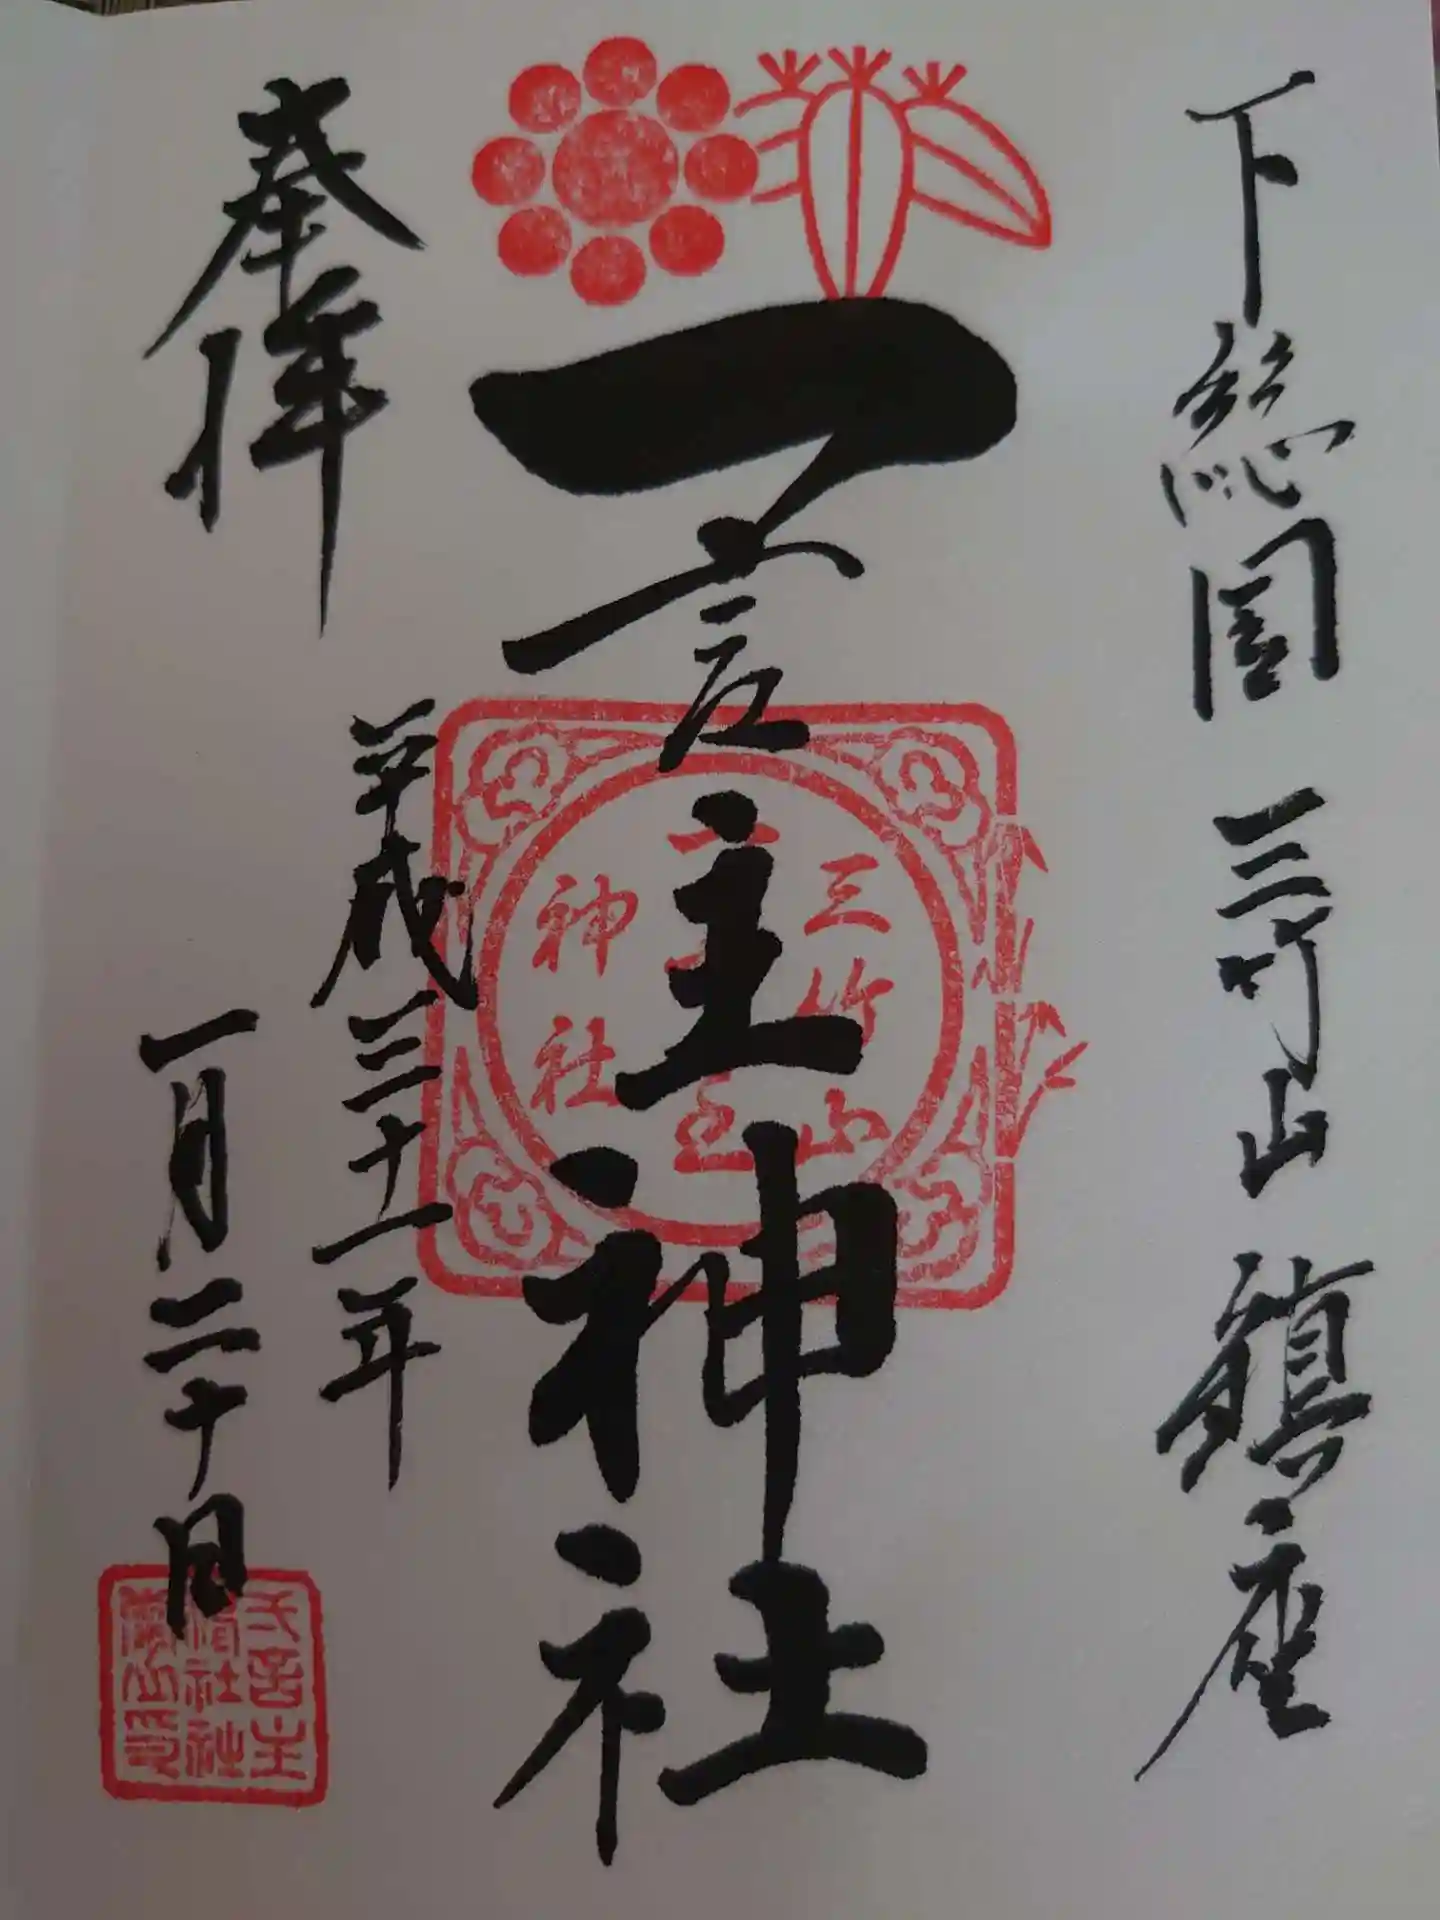 下総国 三竹山 鎮座
一言主神社
三竹山
神社
奉拝
平成三十一年
一月二十日